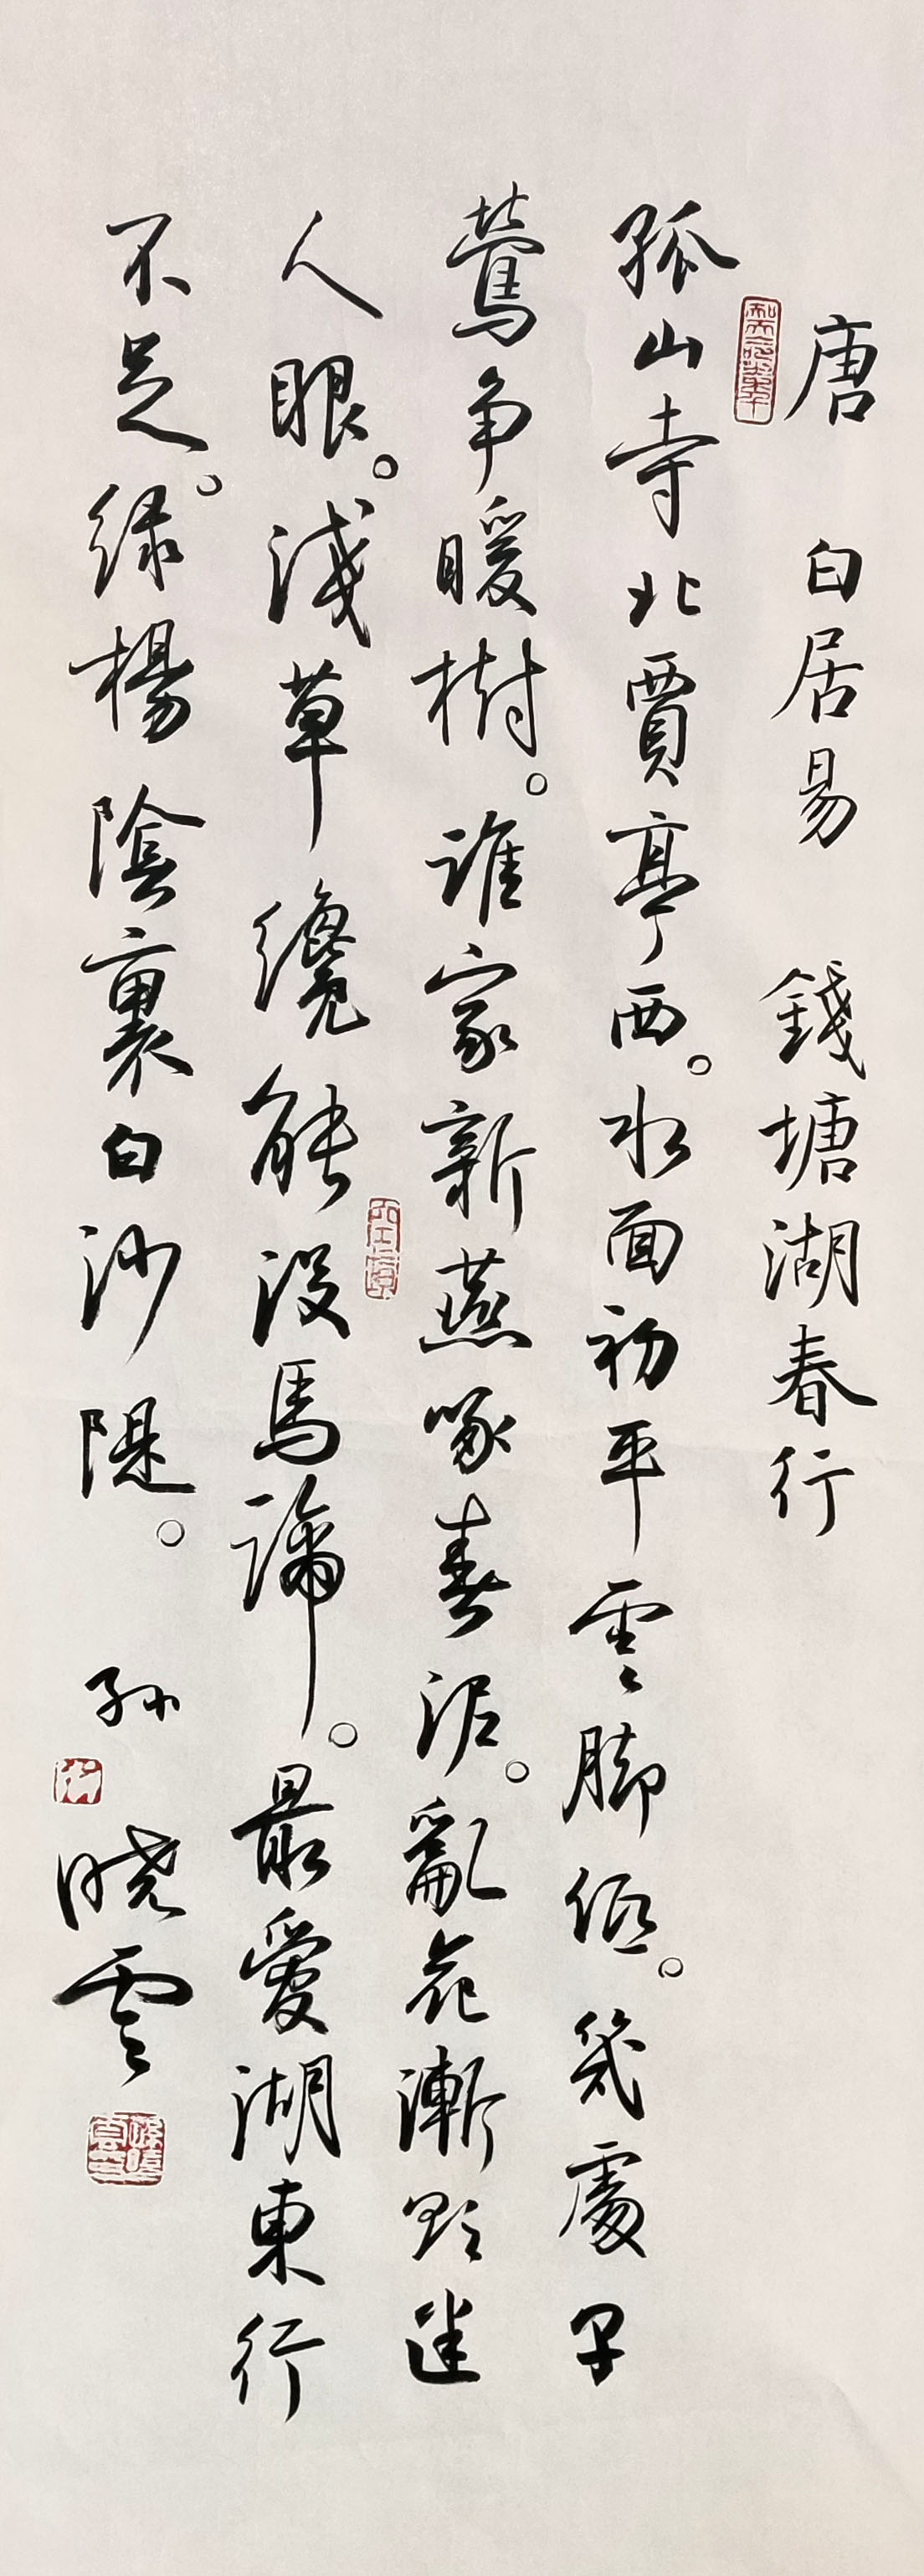 唐 白居易 錢塘湖春行
孤山寺北賈亭西。水面初平雲脚低。幾處早
鶯争暖樹。誰家新燕啄春泥。亂花漸欲迷
人眼。淺草纔能没馬蹄。最愛湖東行
不足。綠楊陰裏白沙隄。 孫曉雲